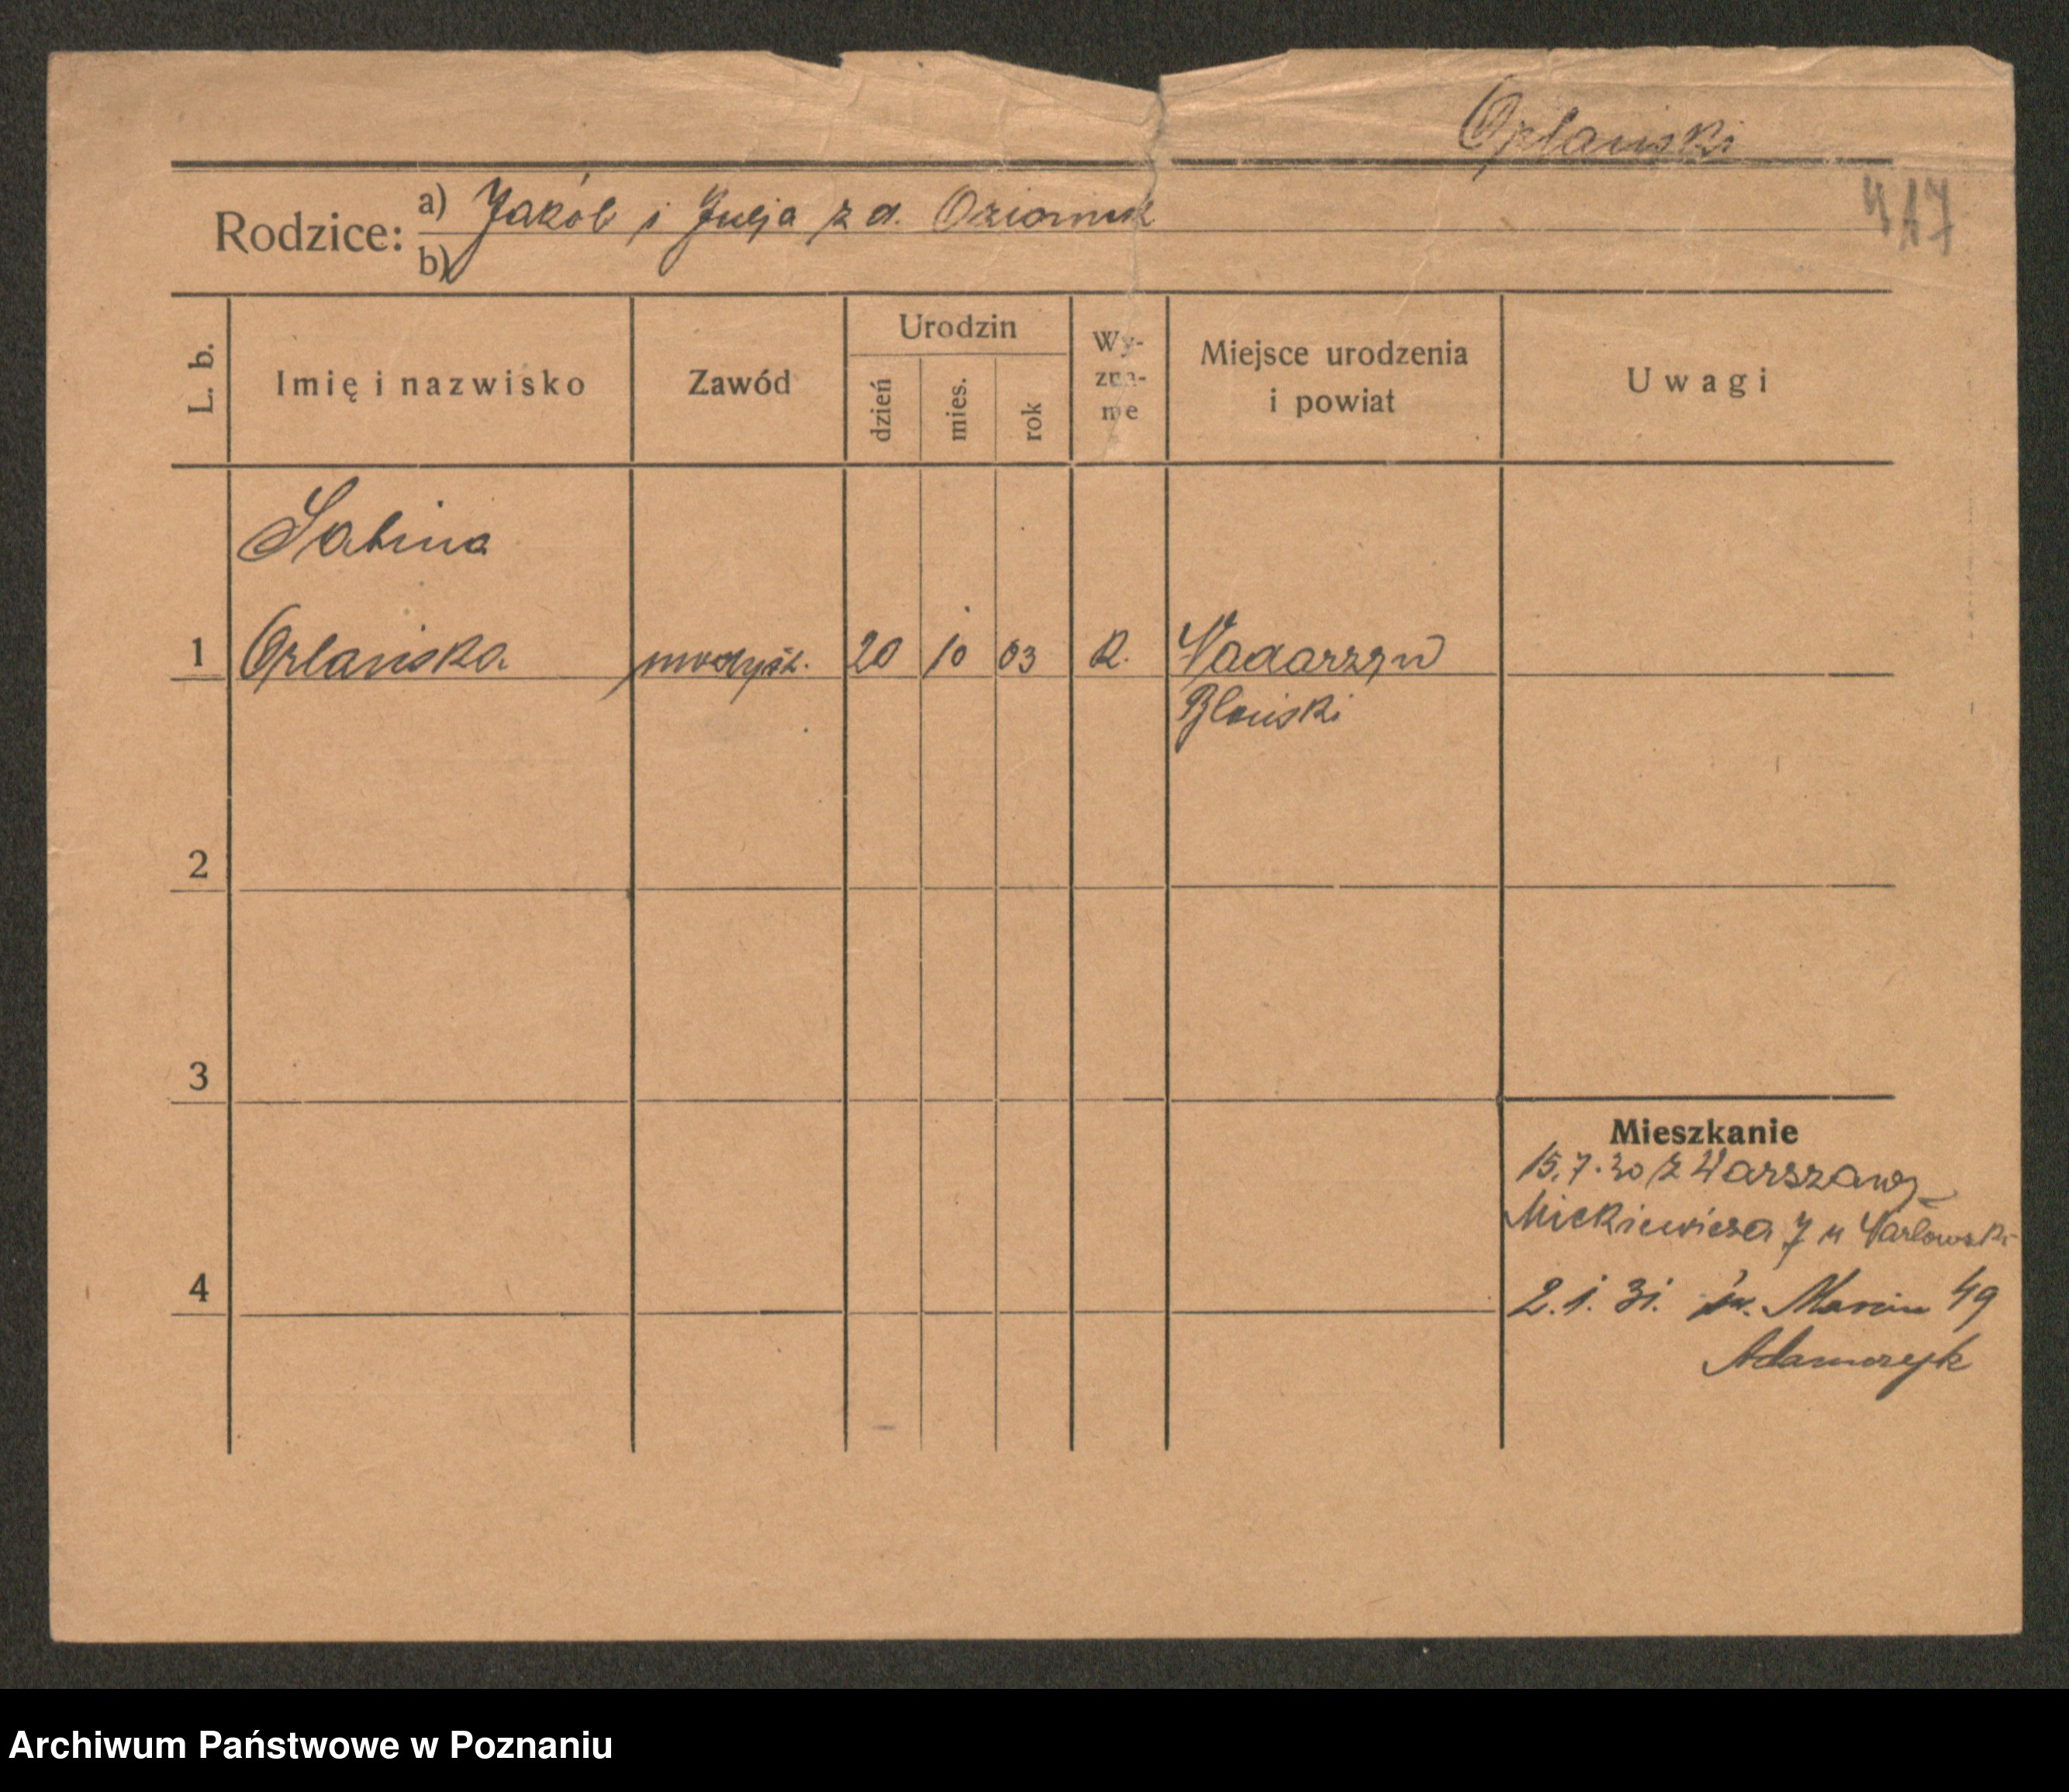 Orlański
417
Rodzice: a) Jakób i Julja z d. Oziomek
b)
L. b.
Imię i nazwisko
Zawód
Urodzin
dzień
mies.
rok
Wy-
zna-
nie
Miejsce urodzenia
i powiat
Uwagi
Sabina
1 Orlańska modyst. 20 10 03 R. Nadarzyn
Błoński
2
3
4
Mieszkanie
15.7.30 z Warszawy
Mickiewicza 7 u
2.1.31. św. Marcin 49
Adamczyk
Archiwum Państwowe w Poznaniu